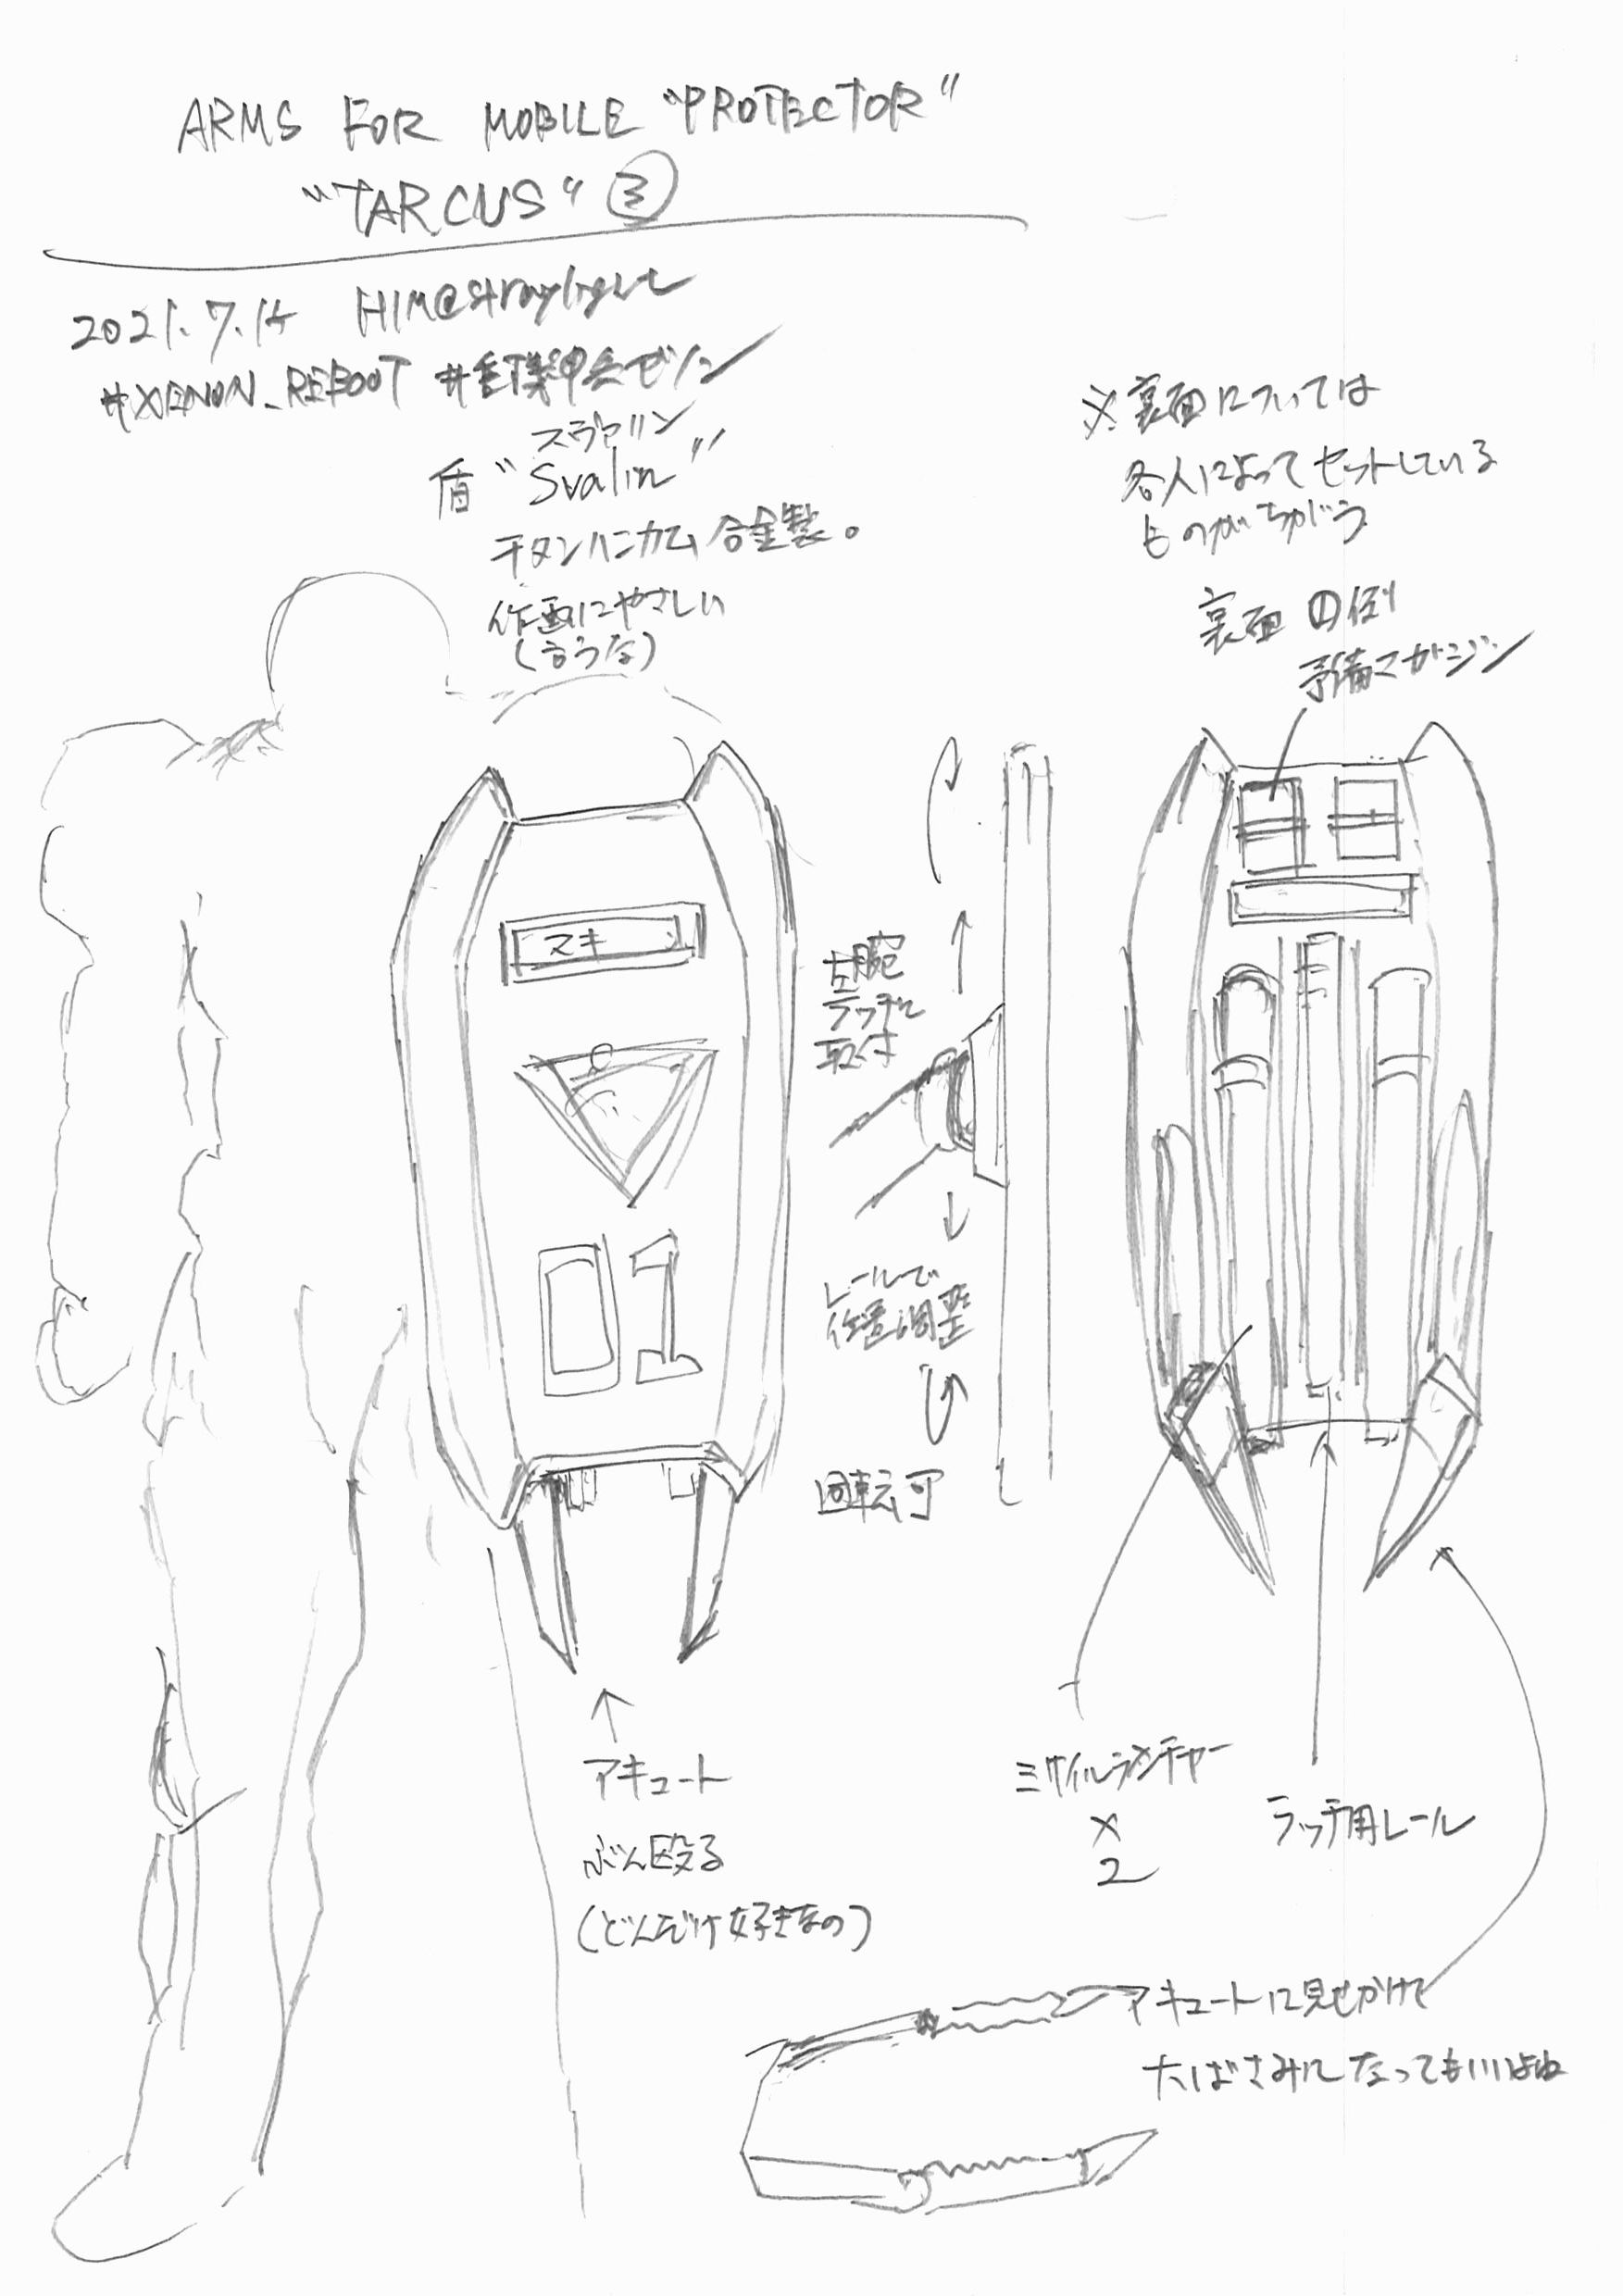 ARMS FOR MOBILE "PROTECTOR"
"TARCUS" ③
2021.7.14 HIM@straylight
#XENON_REBOOT #重機甲兵ゼノン
スヴァリン
盾 "Svalin"
チタンハニカム合金製。
作画にやさしい
(言うな)
※裏面については
各人によってセットしている
ものがちがう
裏面の例
予備マガジン
スキ
左腕
ラッチに
取付
レールで
位置調整
回転可
01
アキュート
ぶん殴る
(どんだけ好きなの)
ミサイルランチャー
×
2
ラッチ用レール
アキュートに見せかけて
大ばさみになってもいいよね